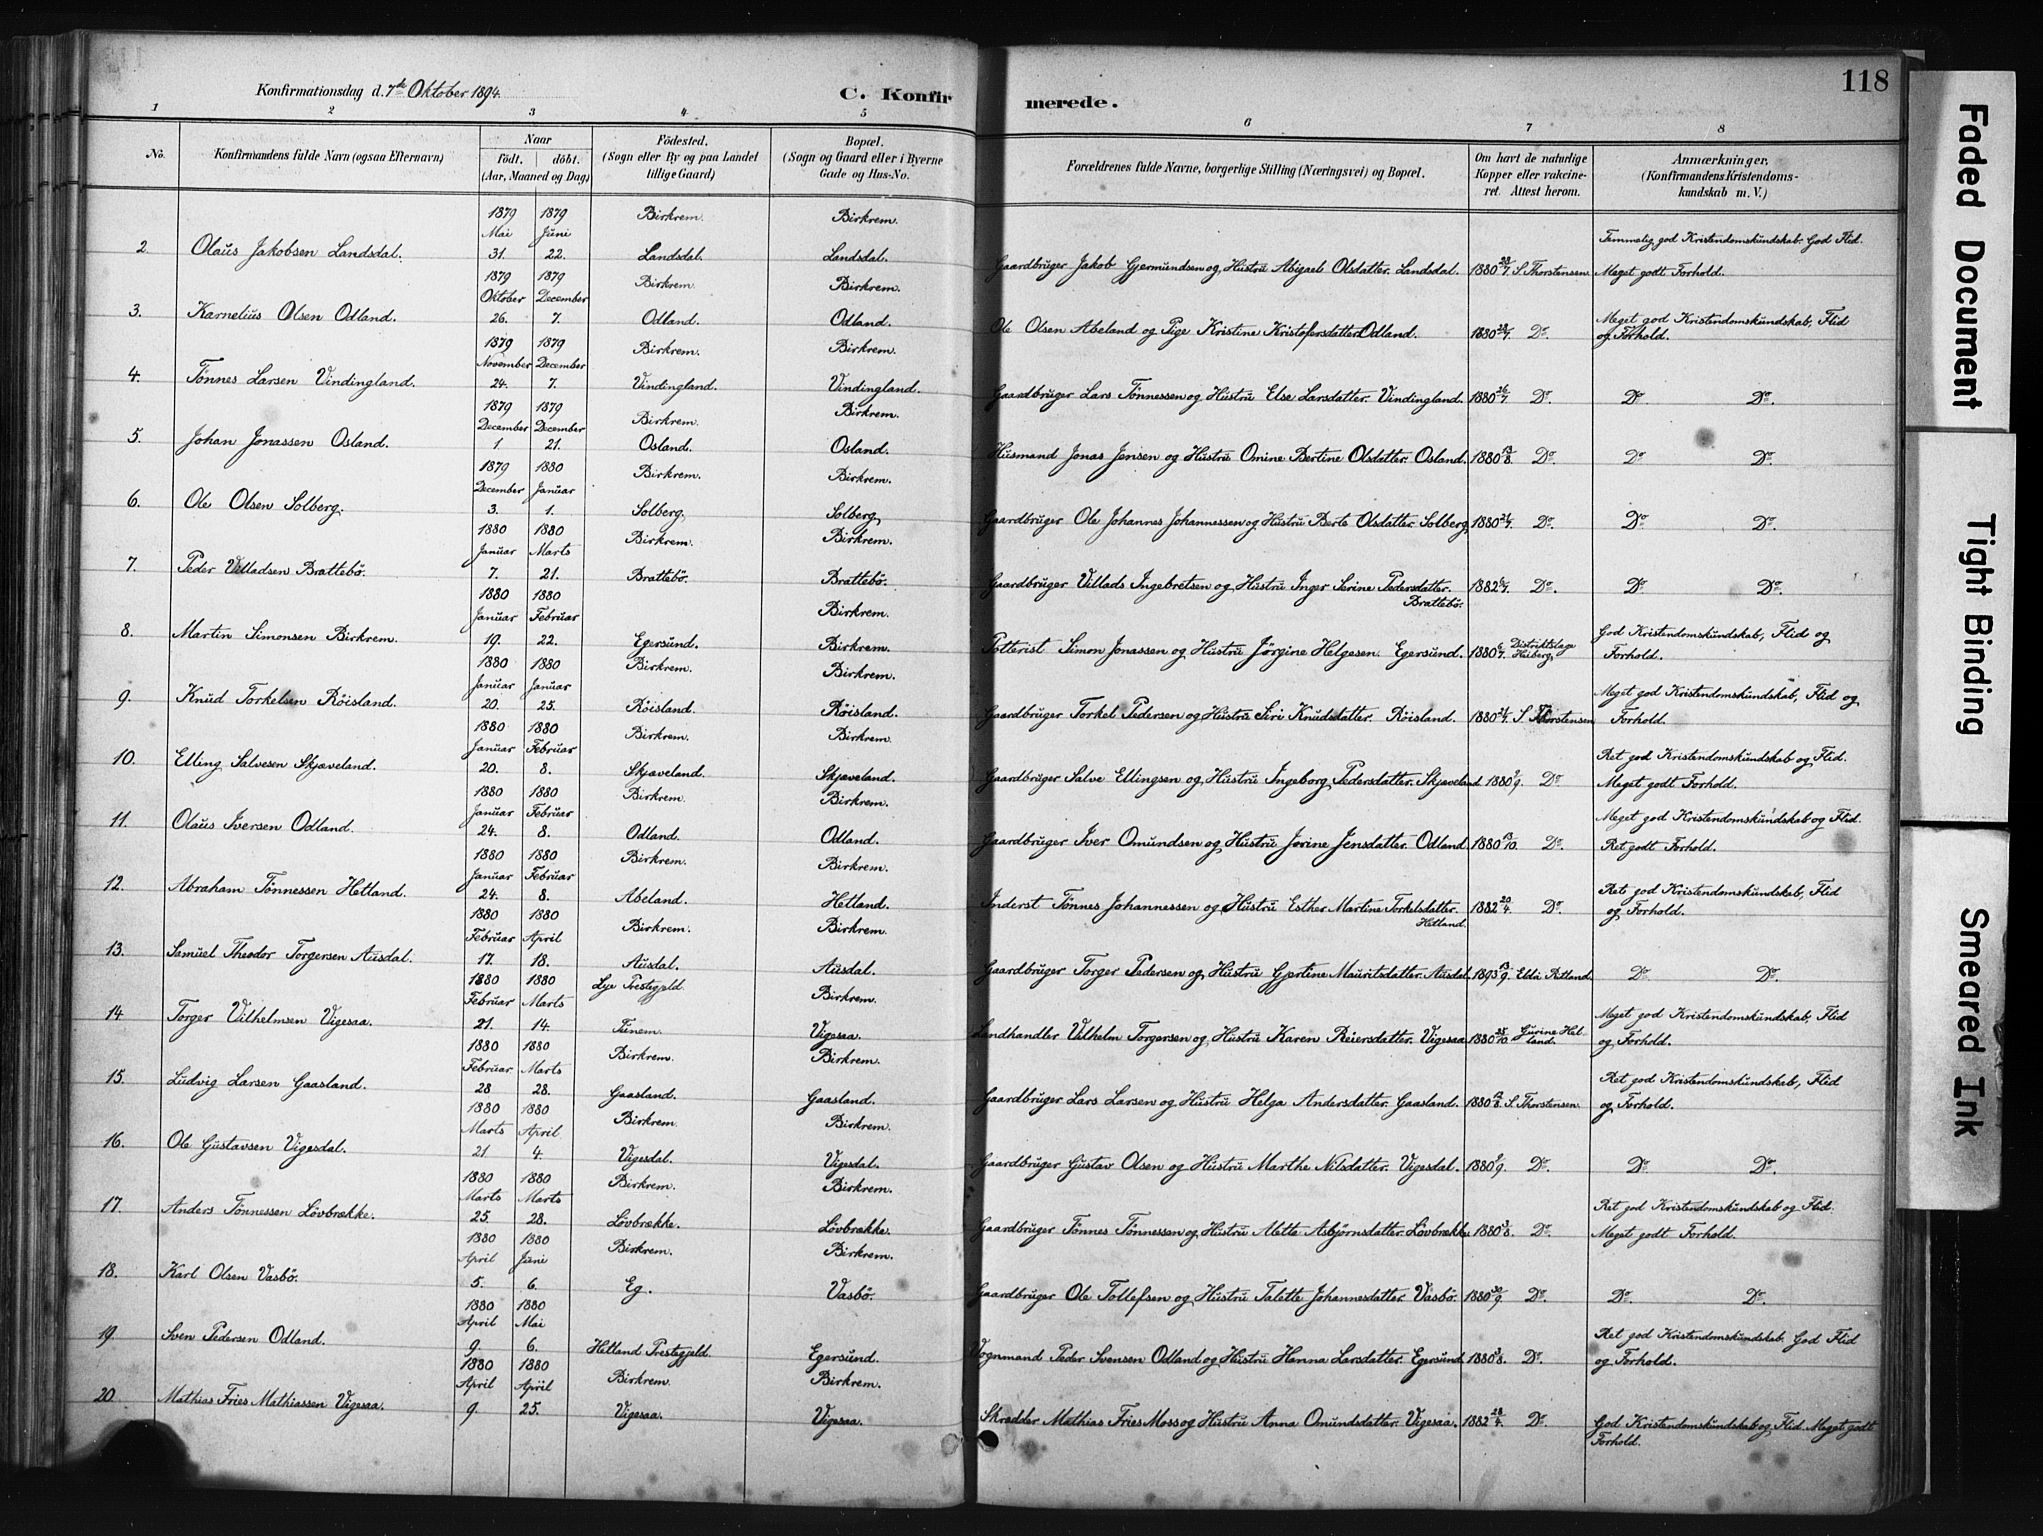 118
Konfirmationsdag d. 7de Oktober 1894.
C. Konfirmerede.
1 2 3 4 5 6 7 8
No. Konfirmandens fulde Navn (ogsaa Efternavn) Naar födt. döbt. (Aar, Maaned og Dag) Födested. (Sogn eller By og paa Landet tillige Gaard) Bopæl. (Sogn og Gaard eller i Byerne Gade og Hus-No. Forældrenes fulde Navne, borgerlige Stilling (Næringsvei) og Bopæl. Om havt de naturlige Kopper eller vakcineret. Attest herom. Anmærkninger. (Konfirmandens Kristendomskundskab m. V.)
2. Olaus Jakobsen Landsdal. 1879 Mai 31. 1879 Juni 22. Birkrem. Landsdal. Birkrem. Landsdal. Gaardbruger Jakob Gjermundsen og Hustru Abigael Olsdatter Landsdal. 1880 28/7. S. Thorstensen. Temmelig god Kristendomskundskab. God Flid. Meget godt Forhold.
3. Karnelius Olsen Odland. 1879 Oktober 26. 1879 December 7. Birkrem. Odland. Birkrem. Odland. Ole Olsen Abeland og Pige Kristine Kristofersdatter Odland. 1880 28/7. Do. Meget god Kristendomskundskab, Flid og Forhold.
4. Tönnes Larsen Vindingland. 1879 November 24. 1879 December 7. Birkrem. Vindingland. Birkrem. Vindingland. Gaardbruger Lars Tönnessen og Hustru Else Larsdatter Vindingland. 1880 26/7. Do. Do. Do.
5. Johan Jonassen Osland. 1879 December 1. 1879 December 21. Birkrem. Osland. Birkrem. Osland. Husmand Jonas Jensen og Hustru Omine Bertine Olsdatter Osland. 1880 13/8. Do. Do. Do.
6. Ole Olsen Solberg. 1879 December 3. 1880 Januar 1. Birkrem. Solberg. Birkrem. Solberg. Gaardbruger Ole Johannes Johannessen og Hustru Berte Olsdatter Solberg. 1880 21/7. Do. Do. Do.
7. Peder Villadsen Brattebö. 1880 Januar 7. 1880 Marts 21. Birkrem. Brattebö. Birkrem. Brattebö. Gaardbruger Villads Ingebretsen og Hustru Inger Serine Pedersdatter Brattebö. 1882 Do. Do. Do.
8. Martin Simonsen Birkrem. 1880 Januar 19. 1880 Februar 22. Egersund. Birkrem. Birkrem. Potterist Simon Jonassen og Hustru Jörgine Helgesen Egersund. 1880 6/7. Distriktslæge Heiberg. God Kristendomskundskab, Flid og Forhold.
9. Knud Torkelsen Röisland. 1880 Januar 20. 1880 Januar 25. Birkrem. Röisland. Birkrem. Röisland. Gaardbruger Torkel Pedersen og Hustru Siri Knudsdatter Röisland. 1880 21/7. S. Thorstensen. Meget god Kristendomskundskab, Flid og Forhold.
10. Elling Salvesen Skjæveland. 1880 Januar 20. 1880 Februar 8. Birkrem. Skjæveland. Birkrem. Skjæveland. Gaardbruger Salve Ellingsen og Hustru Ingeborg Pedersdatter Skjæveland 1880 Do. Ret god Kristendomskundskab og Flid. Meget godt Forhold.
11. Olaus Iversen Odland. 1880 Januar 24. 1880 Februar 8. Birkrem. Odland. Birkrem. Odland. Gaardbruger Iver Omundsen og Hustru Jorine Jensdatter Odland. 1880 13/10. Do. Meget god Kristendomskundskab og Flid. Ret godt Forhold.
12. Abraham Tönnessen Hetland. 1880 Januar 24. 1880 Februar 8. Birkrem. Abeland. Birkrem. Hetland. Inderst Tönnes Johannessen og Hustru Esther Martine Torkelsdatter Hetland. 1882 20/4. Do. Ret god Kristendomskundskab, Flid og Forhold.
13. Samuel Theodor Torgersen Ausdal. 1880 Februar 17. 1880 April 18. Birkrem. Ausdal. Birkrem. Ausdal. Gaardbruger Torger Pedersen og Hustru Gjertine Mauritsdatter Ausdal. 1893 13/9. Do. Do.
14. Torger Vilhelmsen Vigesaa. 1880 Februar 21. 1880 Marts 14. Lye Prestegjeld. Tunem. Birkrem. Vigesaa. Landhandler Vilhelm Torgersen og Hustru Karen Reiersdatter Vigesaa 1880 25/10. Gurine Helland. Meget god Kristendomskundskab, Flid og Forhold.
15. Ludvig Larsen Gaasland. 1880 Februar 28 1880 Marts 28. Birkrem. Gaasland. Birkrem. Gaasland. Gaardbruger Lars Larsen og Hustru Helga Andersdatter Gaasland. 1880 S. Thorstensen. Ret god Kristendomskundskab, Flid og Forhold.
16. Ole Gustavsen Vigesdal. 1880 Marts 21 1880 April 4. Birkrem. Vigesdal. Birkrem. Vigesdal. Gaardbruger Gustav Olsen og Hustru Marthe Nilsdatter Vigesdal. 1880 Do. Do. Do.
17. Anders Tönnessen Lövbrække. 1880 Marts 25. 1880 Marts 28. Birkrem. Lövbrække. Birkrem. Lövbrække. Gaardbruger Tönnes Tönnessen og Hustru Mette Asbjørnsdatter Lövbrække 1880 3/8. Do. Ret god Kristendomskundskab og Flid. Meget godt Forhold.
18. Karl Olsen Vasbö. 1880 April 5. 1880 Juni 6. Birkrem. Eg. Birkrem. Vasbö. Gaardbruger Ole Tollefsen og Hustru Talette Johannesdatter Vasbö. 1880 30/9. Do. Do. Do.
19. Sven Pedersen Odland. 1880 April 9. 1880 Mai 6. Hetland Prestegjeld. Egersund. Vognmand Peder Svensen Odland og Hustru Hanna Larsdatter Egersund. 1880 3/8. Do. Ret god Kristendomskundskab. God Flid og Forhold.
20. Mathias Fries Mathiassen Vigesaa. 1880 April 9. 1880 April 25. Birkrem. Vigesaa. Birkrem. Vigesaa. Skrædder Mathias Fries Moss og Hustru Anna Omundsdatter Vigesaa. 1882 28/4. Do. God Kristendomskundskab og Flid. Meget godt Forhold.
Faded Document
Tight Binding
Smeared Ink